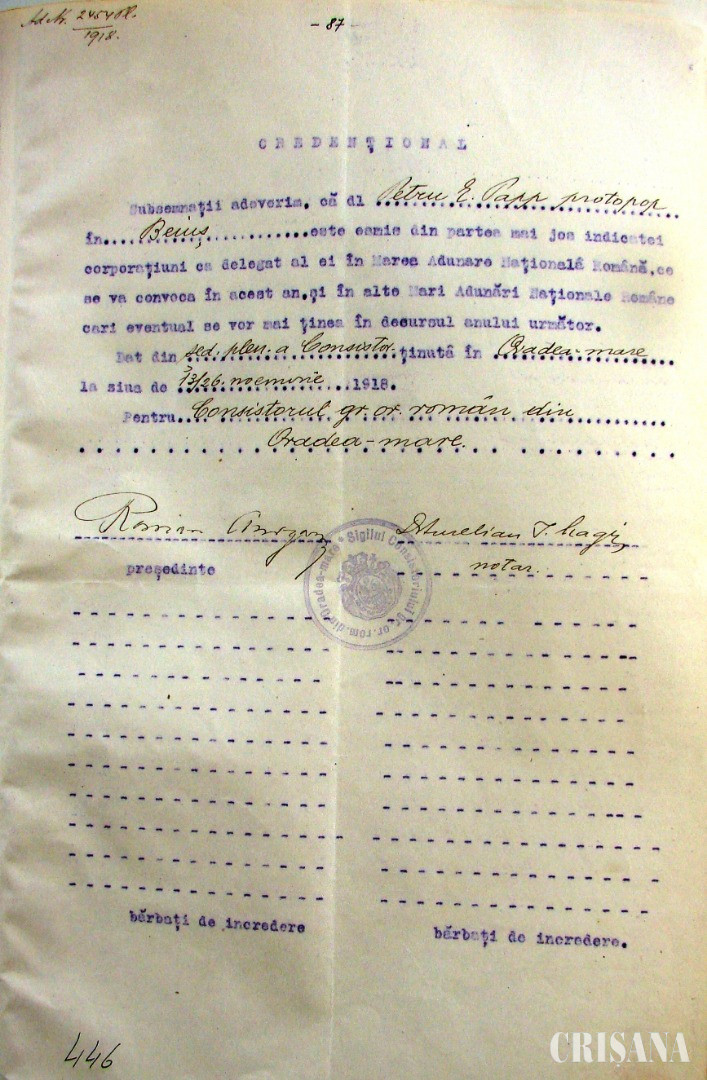 Ad Nr. 2454 Pl.
1918.
- 87 -
CREDENȚIONAL
Subsemnații adeverim, că dl Petru E. Papp protopop
în....Beiuș...........este esmis din partea mai jos indicatei
corporațiuni ca delegat al ei în Marea Adunare Națională Română,ce
se va convoca în acest an,și în alte Mari Adunări Naționale Române
cari eventual se vor mai ținea în decursul anului următor.
Dat din șed. plen. a Consistor. ținută în Oradea-mare
la ziua de 13/26. noemvrie 1918.
Pentru Consistorul gr. or. român din
Oradea-mare.
Roman Ciorogariu
Dr Aurelian I.
președinte
notar.
Sigilul Consistoriului gr. or. rom. din Oradea-mare
bărbați de incredere
bărbați de incredere.
446
CRIȘANA